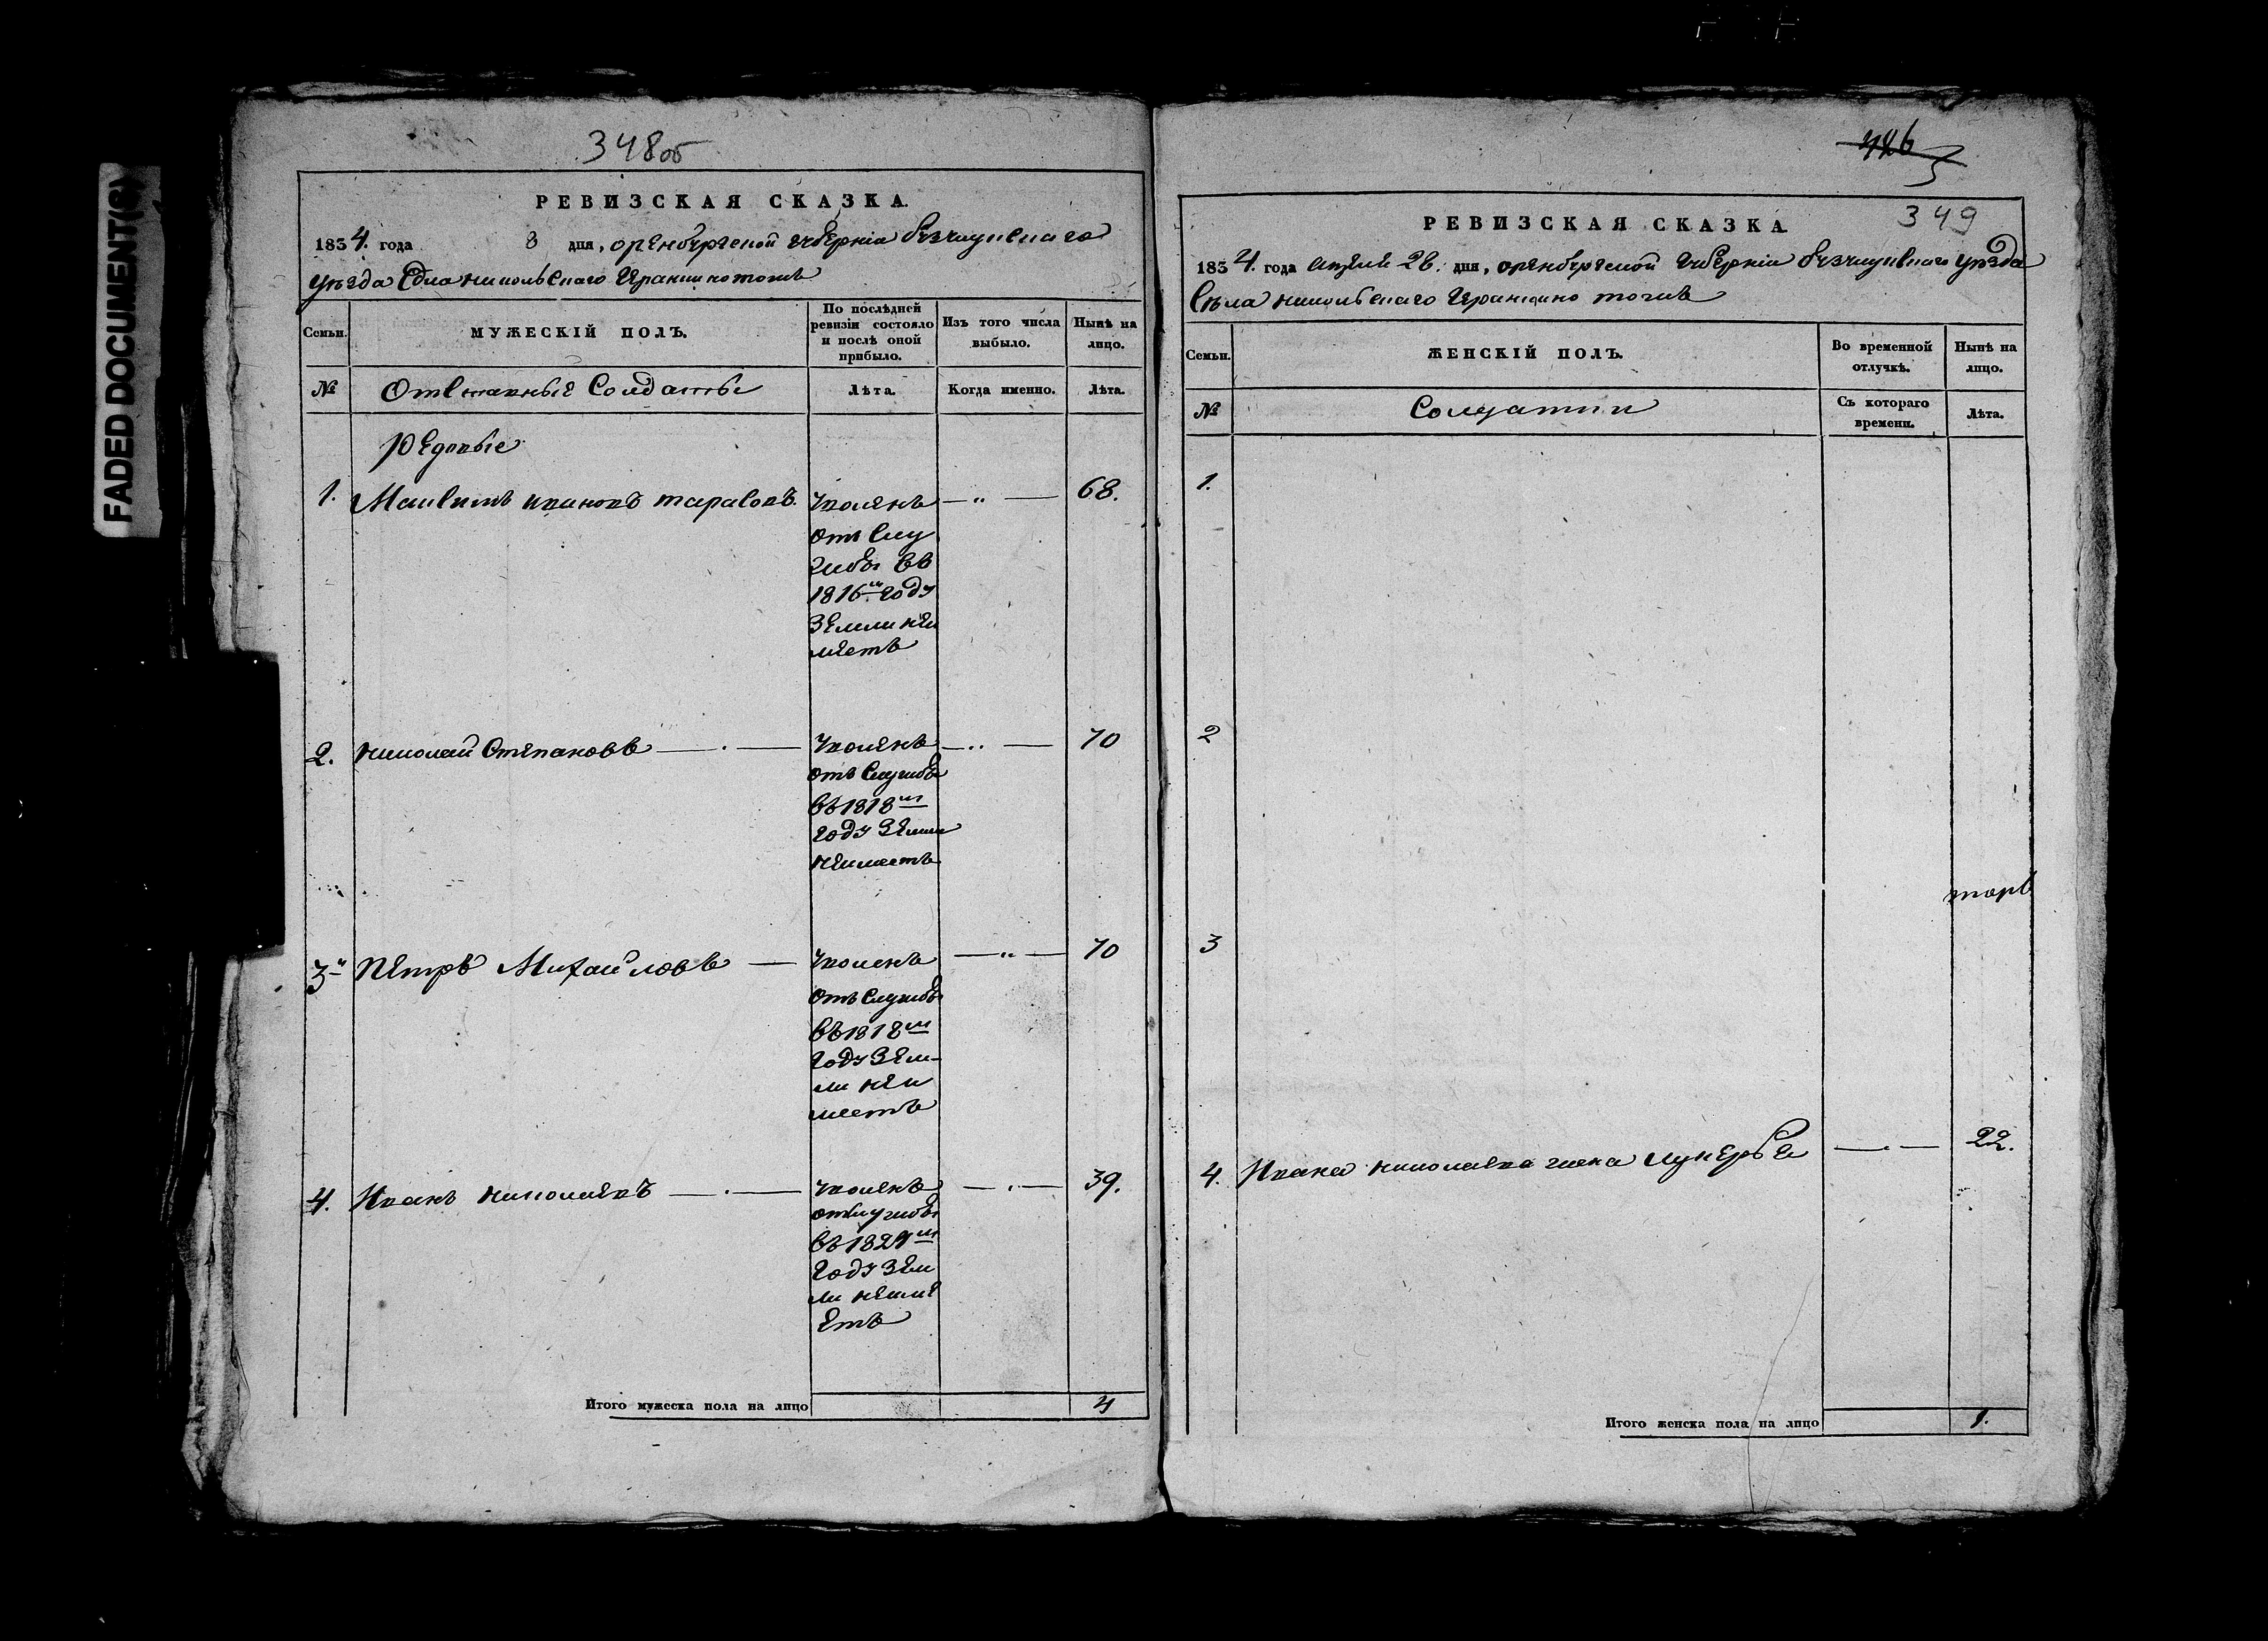 FADED DOCUMENT(S)
348об
РЕВИЗСКАЯ СКАЗКА.
1834. года 8 дня, оренбургской губерніи бузулукскаго
уѣзда Села никольскаго
Семьи. МУЖЕСКІЙ ПОЛЪ. По послѣдней ревизіи состояло и послѣ оной прибыло. Изъ того числа выбыло. Нынѣ на лицо.
№ Отставные Солдаты Лѣта. Когда именно. Лѣта.
Редовые
1. ивановъ тарасовъ. уволенъ — „ — 68.
отъ слу
жбы въ
1816м году
Земли неи
меетъ
2. николай Степановъ — . — уволенъ — .. — 70
отъ службы
въ 1818м
году Земли
неимеетъ
3й Петръ Михайловъ — уволенъ — „ — 70
отъ службы
въ 1818м
году Зем-
ли неи
меетъ
4. Иванъ николаевъ — . — уволенъ — . — 39.
отслужбы
въ 1829м
году Зем
ли неиме
етъ
Итого мужеска пола на лицо 4
426
349
РЕВИЗСКАЯ СКАЗКА
1834. года апреля 26. дня, оренбургской губерніи бузулукскаго уѣзда
Села никольскаго
Семьи. ЖЕНСКІЙ ПОЛЪ. Во временной отлучкѣ. Нынѣ на лицо.
№ Солдатки Съ котораго времени. Лѣта.
1.
2
3
4. Ивана николаева жена лукерья — . — 22.
Итого женска пола на лицо 1.